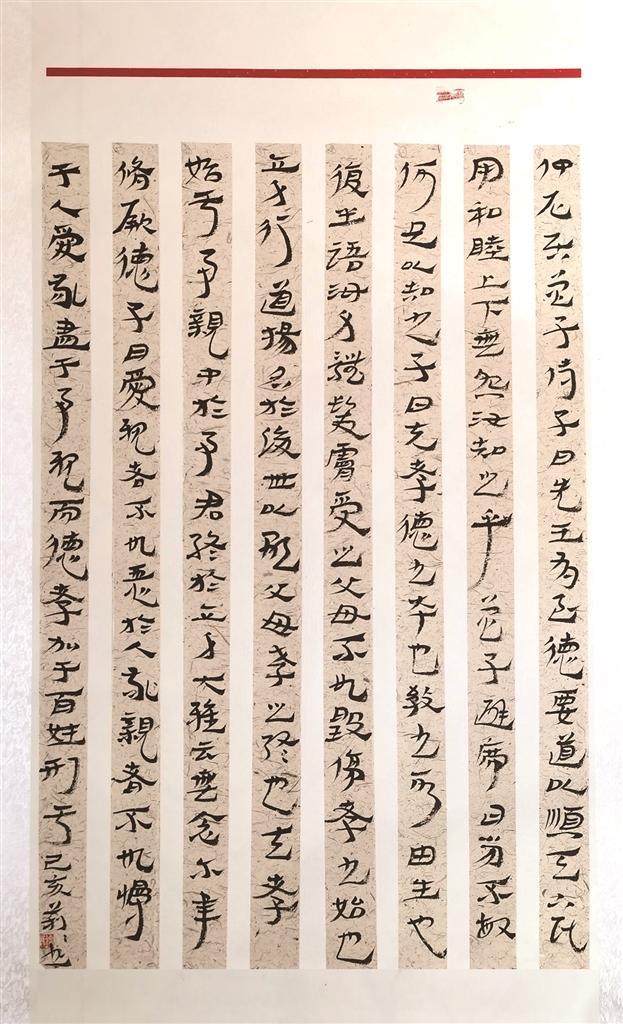 仲尼居曾子侍子曰先王有至德要道以順天下民
用和睦上下無怨汝知之乎曾子避席曰參不敏
何足以知之子曰夫孝德之本也教之所由生也
復坐語汝身體髮膚受之父母不敢毀傷孝之始也
立身行道揚名於後世以顯父母孝之終也夫孝
始于事親中於事君終於立身大雅云無念尔聿
脩厥德子曰愛親者不敢惡於人敬親者不敢慢
于人愛敬盡于事親而德孝加于百姓刑于己亥